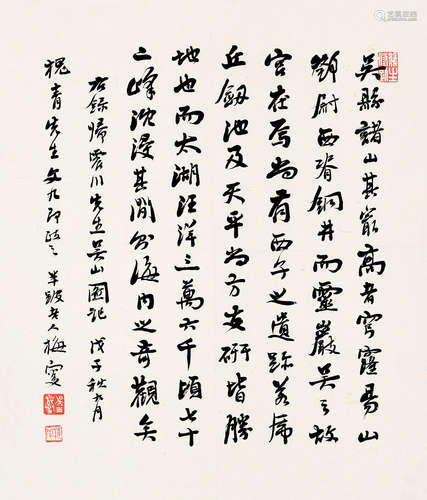 吳縣諸山其最高者穹窿昜山
鄧尉西脊銅井而靈巖吳之故
宮在焉尚有西子之遺跡若虎
丘劔池及天平尚方支硎皆勝
地也而太湖汪洋三萬六千頃七十
二峰沈浸其間則海内之奇觀矣
右錄歸震川先生吳山圖記 戊子秋九月
槐青先生 政之 老人梅